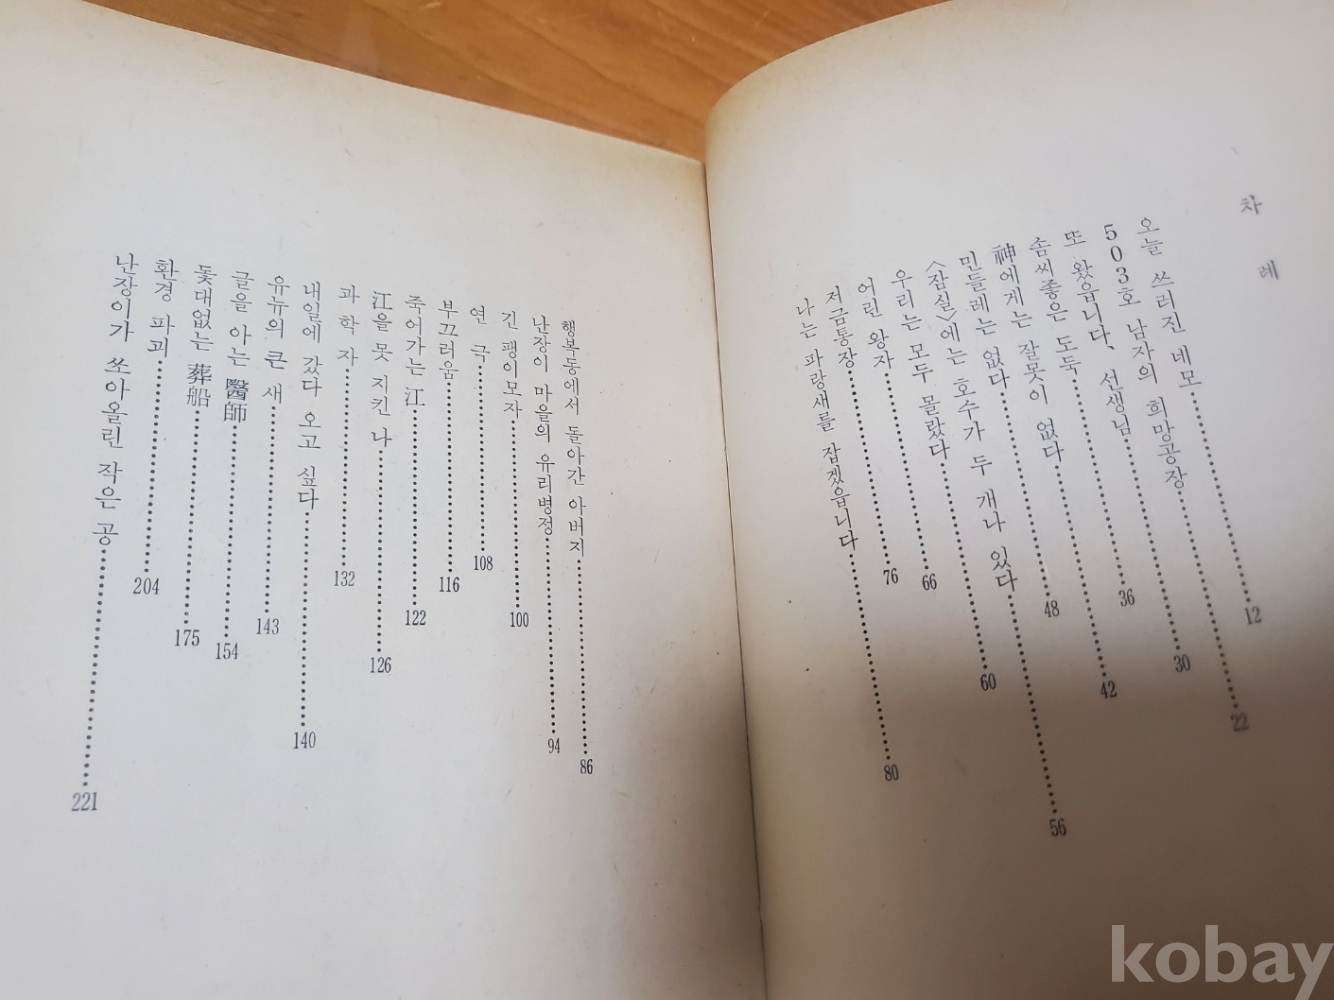 차 례
오늘 쓰러진 네모 12
503호 남자의 희망공장 22
또 왔읍니다、선생님 30
솜씨좋은 도둑 36
神에게는 잘못이 없다 42
민들레는 없다 48
〈잠실〉에는 호수가 두 개나 있다 56
우리는 모두 몰랐다 60
어린 왕자 66
저금통장 76
나는 파랑새를 잡겠읍니다 80
행복동에서 돌아간 아버지 86
난장이 마을의 유리병정 94
긴 팽이모자 100
연 극 108
부끄러움 116
죽어가는 江 122
江을 못 지킨 나 126
과 학 자 132
내일에 갔다 오고 싶다 140
유뉴의 큰 새 143
글을 아는 醫師 154
돛대없는 葬船 175
환경 파괴 204
난장이가 쏘아올린 작은 공 221
kobay